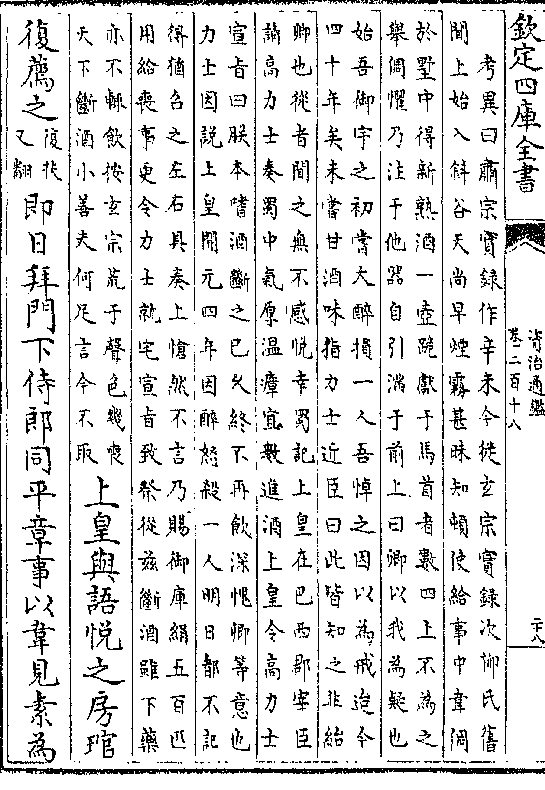 欽定四庫全書
資治通鑑
卷二百十八
二十八
考異曰肅宗實録作辛未今從玄宗實録次栁氏舊
聞上始入斜谷天尚早煙霧甚昧知頓使給事中韋倜
於墅中得新熟酒一壺跪獻于馬首者數四上不為之
舉倜懼乃注于他器自引滿于前上曰卿以我為疑也
始吾御宇之初嘗大醉損一人吾悼之因以為戒迨今
四十年矣未嘗甘酒味指力士近臣曰此皆知之非紿
卿也從者聞之無不感悦幸蜀記上皇在巴西郡宰臣
諭高力士奏蜀中氣厚温瘴宜數進酒上皇令高力士
宣旨曰朕本嗜酒斷之已久終不再飲深愧卿等意也
力士因説上皇開元四年因醉怒殺一人明日都不記
得猶召之左右具奏上愴然不言乃賜御庫絹五百匹
用給喪事更令力士就宅宣旨致祭從兹斷酒雖下藥
亦不輒飲按玄宗荒于聲色幾喪
天下斷酒小善夫何足言今不取
上皇與語悦之房琯
復薦之
復扶
又翻
即日拜門下侍郎同平章事以韋見素為